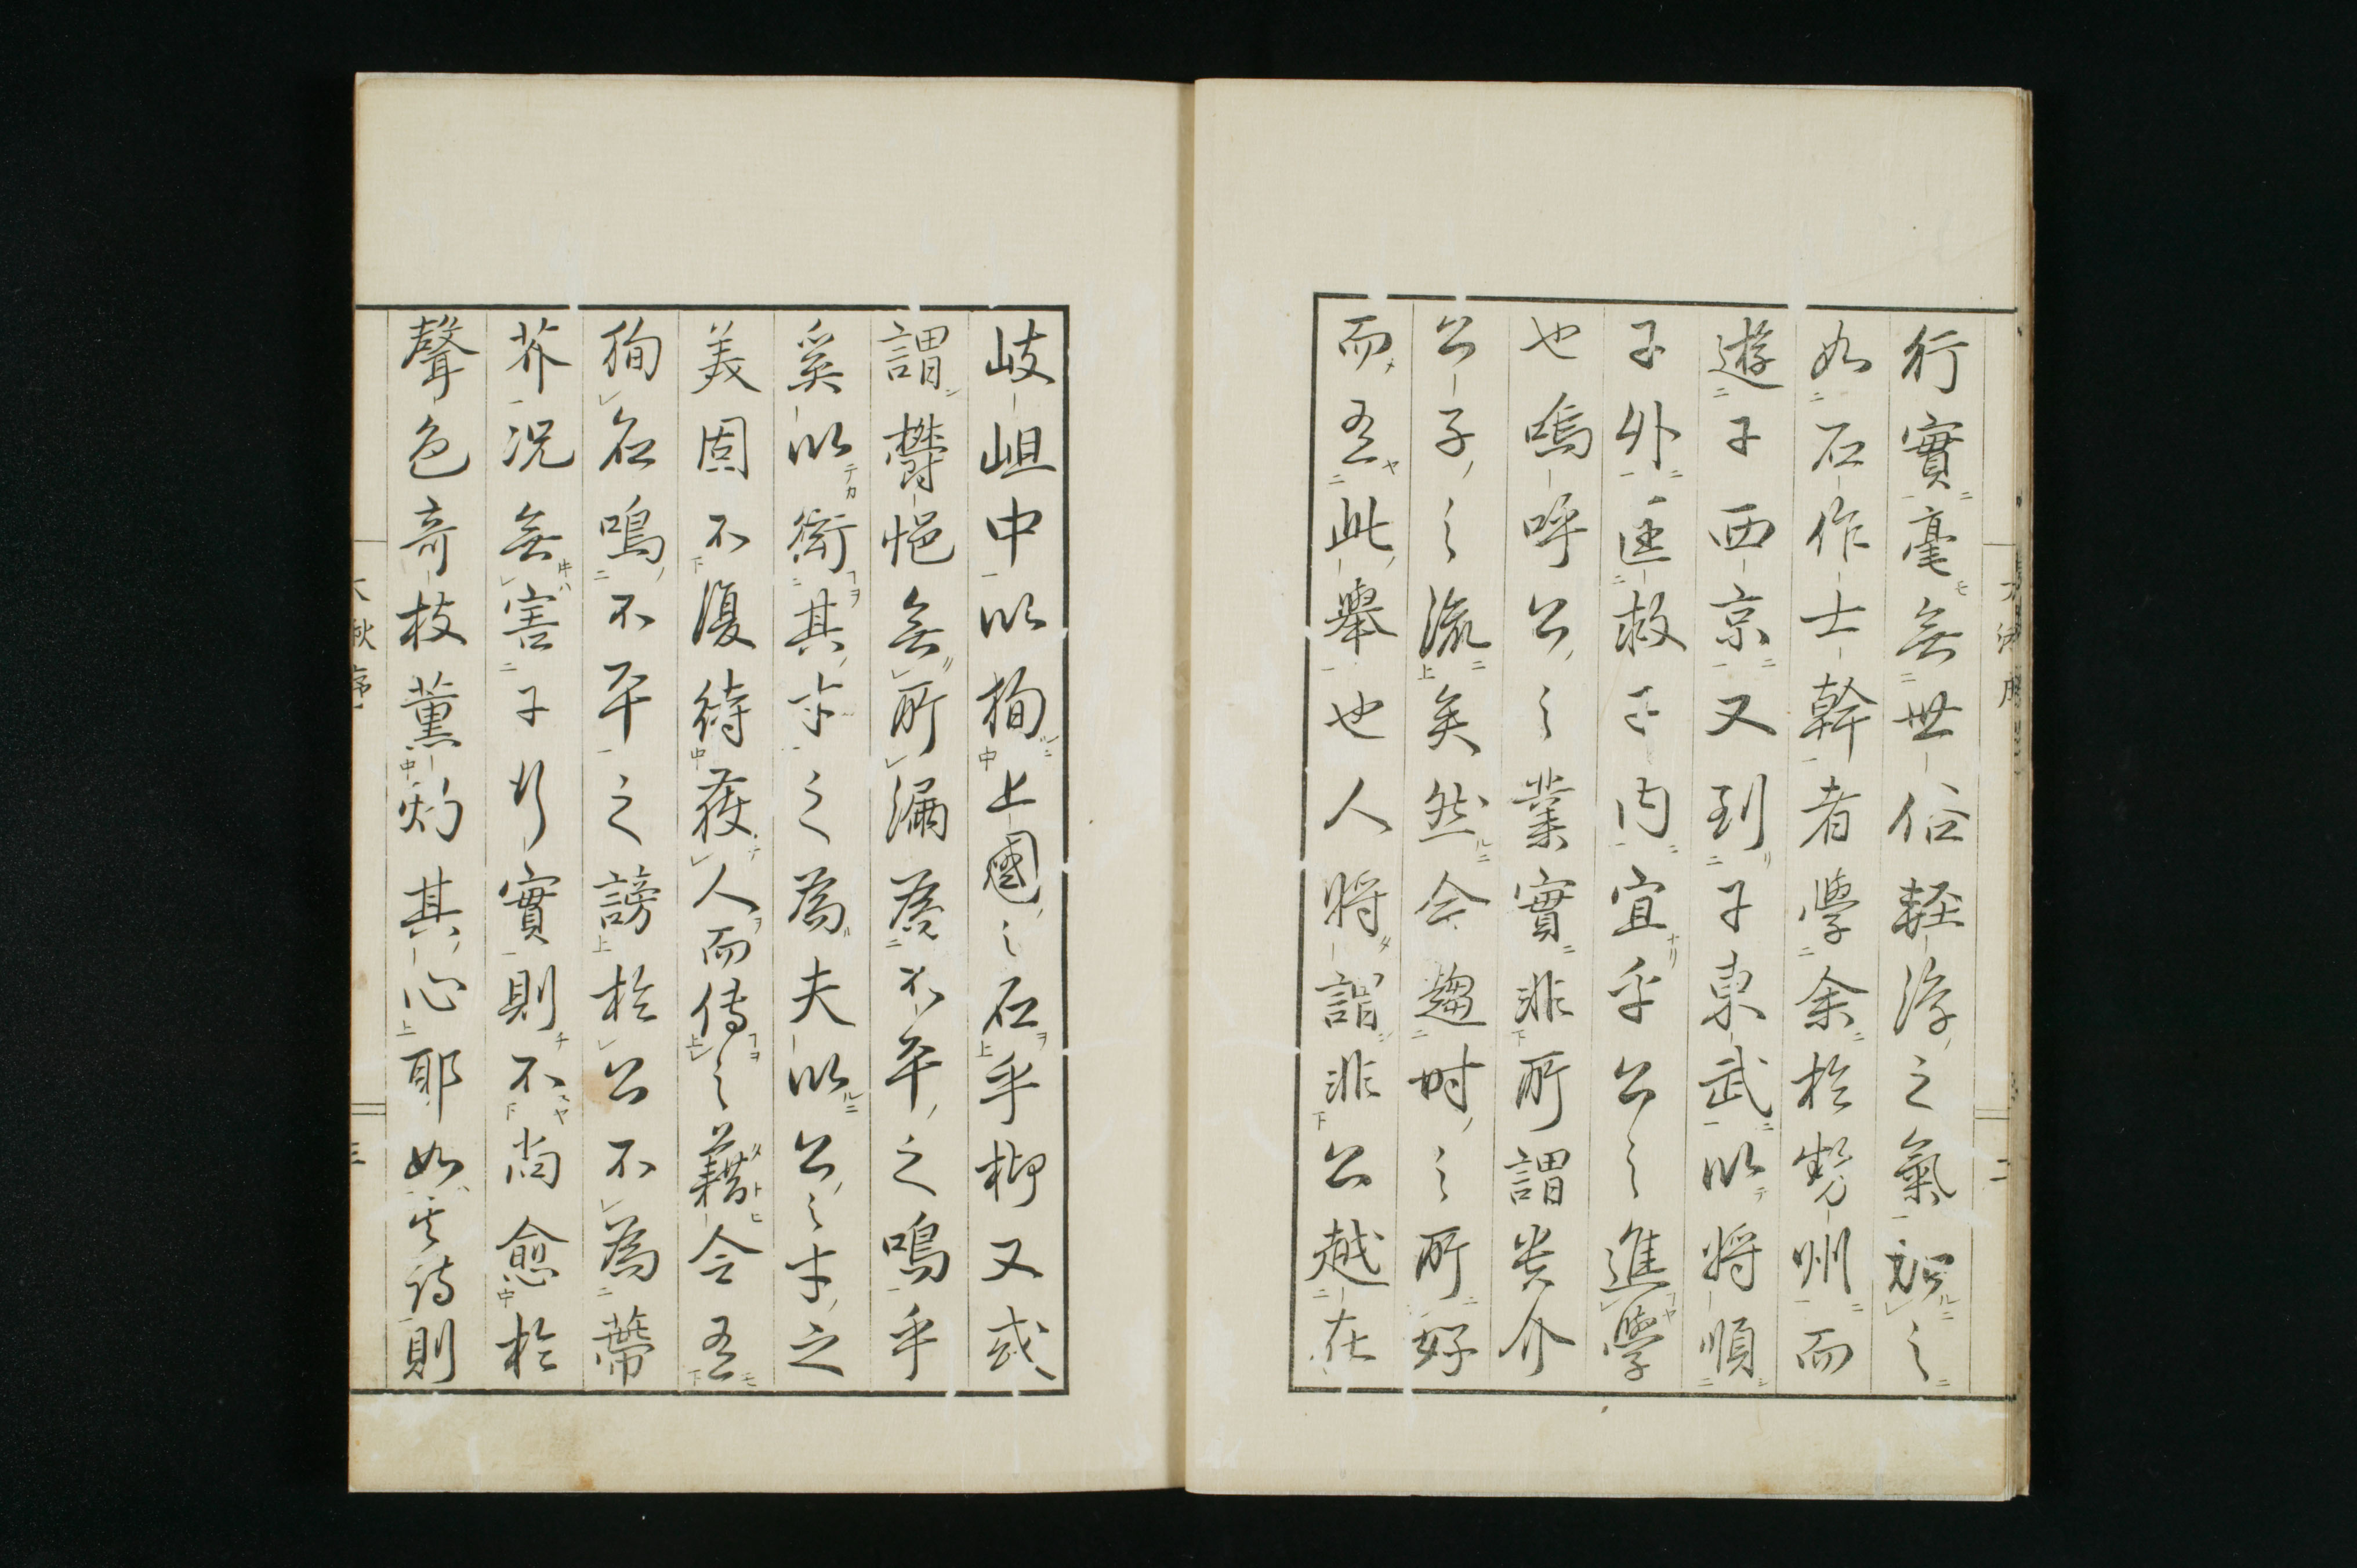 行實毫無世俗輕浮之氣加之
如石作士幹者學余於勢州而
遊于西京又到于東武以將順
于外匡救于内宜乎公之進學
也嗚呼公之業實非所謂貴介
公子之流矣然今趨時之所好
而為此舉也人將謂非公越在
岐岨中以徇上國之石乎抑又或
謂欝悒無所漏為不平之鳴乎
奚以衒其才之為夫以公之才之
美固不復待藉人而傳之藉令吾
徇名鳴不平之謗於公不為蒂
芥況無害于行實則不尚愈於
聲色奇技薰灼其心耶如其詩則